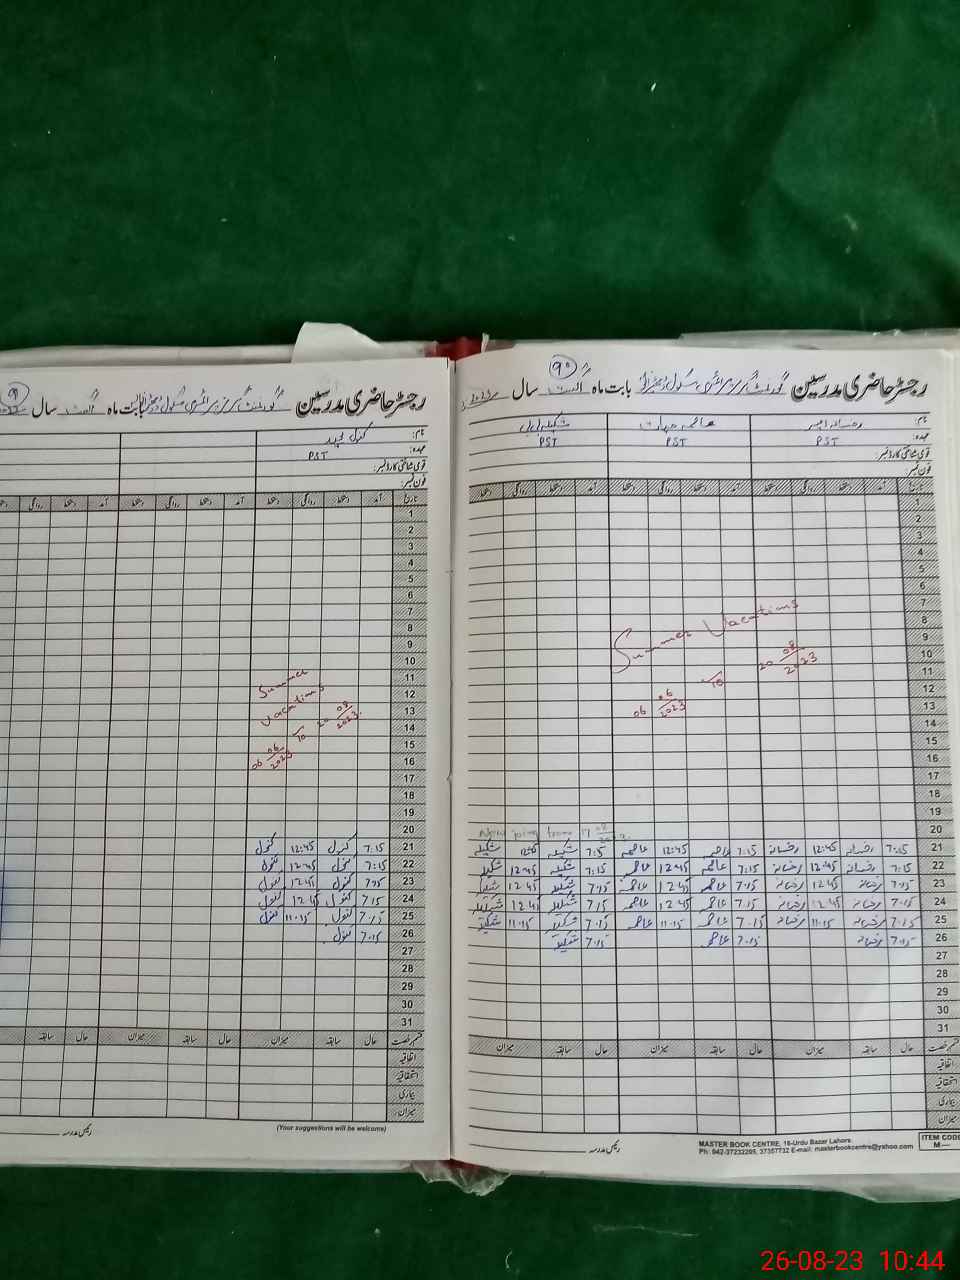 ۹۰
رجسٹر حاضری مدرسین گورنمنٹ گرلز پرائمری سکول بابت ماہ اگست سال 2023
نام: رخسانہ عاصمہ شکیلہ بی بی
عہدہ: PST PST PST
قومی شناختی کارڈ نمبر:
فون نمبر:
تاریخ آمد دستخط روانگی دستخط آمد دستخط روانگی دستخط آمد دستخط روانگی دستخط
1
2
3
4
5
6
7
8
Summer Vacations
9
10
06 06/2023 to 20 08/2023
11
12
13
14
15
16
17
18
19
20
21 7:15 رخسانہ 12:45 رخسانہ 7:15 عاصمہ 12:45 عاصمہ 7:15 شکیلہ 12:45 شکیلہ
22 7:15 رخسانہ 12:45 رخسانہ 7:15 عاصمہ 12:45 عاصمہ 7:15 شکیلہ 12:45 شکیلہ
23 7:15 رخسانہ 12:45 رخسانہ 7:15 عاصمہ 12:45 عاصمہ 7:15 شکیلہ 12:45 شکیلہ
24 7:15 رخسانہ 12:45 رخسانہ 7:15 عاصمہ 12:45 عاصمہ 7:15 شکیلہ 12:45 شکیلہ
25 7:15 رخسانہ 11:15 رخسانہ 7:15 عاصمہ 11:15 عاصمہ 7:15 شکیلہ 11:15 شکیلہ
26 7:15 رخسانہ 7:15 عاصمہ 7:15 شکیلہ
27
28
29
30
31
قسم رخصت حال سابقہ میزان حال سابقہ میزان حال سابقہ میزان
اتفاقیہ
استحقاقیہ
بیماری
میزان:
رئیس مدرسہ
MASTER BOOK CENTRE, 16-Urdu Bazar Lahore.
Ph: 042-37232205, 37357732 E-mail: masterbookcentre@yahoo.com
ITEM CODE
M—
رجسٹر حاضری مدرسین گورنمنٹ گرلز پرائمری سکول بابت ماہ اگست سال 2023
نام: کنول
عہدہ: PST
قومی شناختی کارڈ نمبر:
فون نمبر:
تاریخ آمد دستخط روانگی دستخط آمد دستخط روانگی دستخط آمد روانگی
1
2
3
4
5
6
7
8
9
10
11
Summer
12
Vacations
13
06 06/2023 to 20 08/2023.
14
15
16
17
18
19
20
21 7:15 کنول 12:45 کنول
22 7:15 کنول 12:45 کنول
23 7:15 کنول 12:45 کنول
24 7:15 کنول 12:45 کنول
25 7:15 کنول 11:15 کنول
26 7:15 کنول
27
28
29
30
31
قسم رخصت حال میزان حال سابقہ میزان حال سابقہ
اتفاقیہ
استحقاقیہ
بیماری
میزان:
(Your suggestions will be welcome)
رئیس مدرسہ
26-08-23 10:44